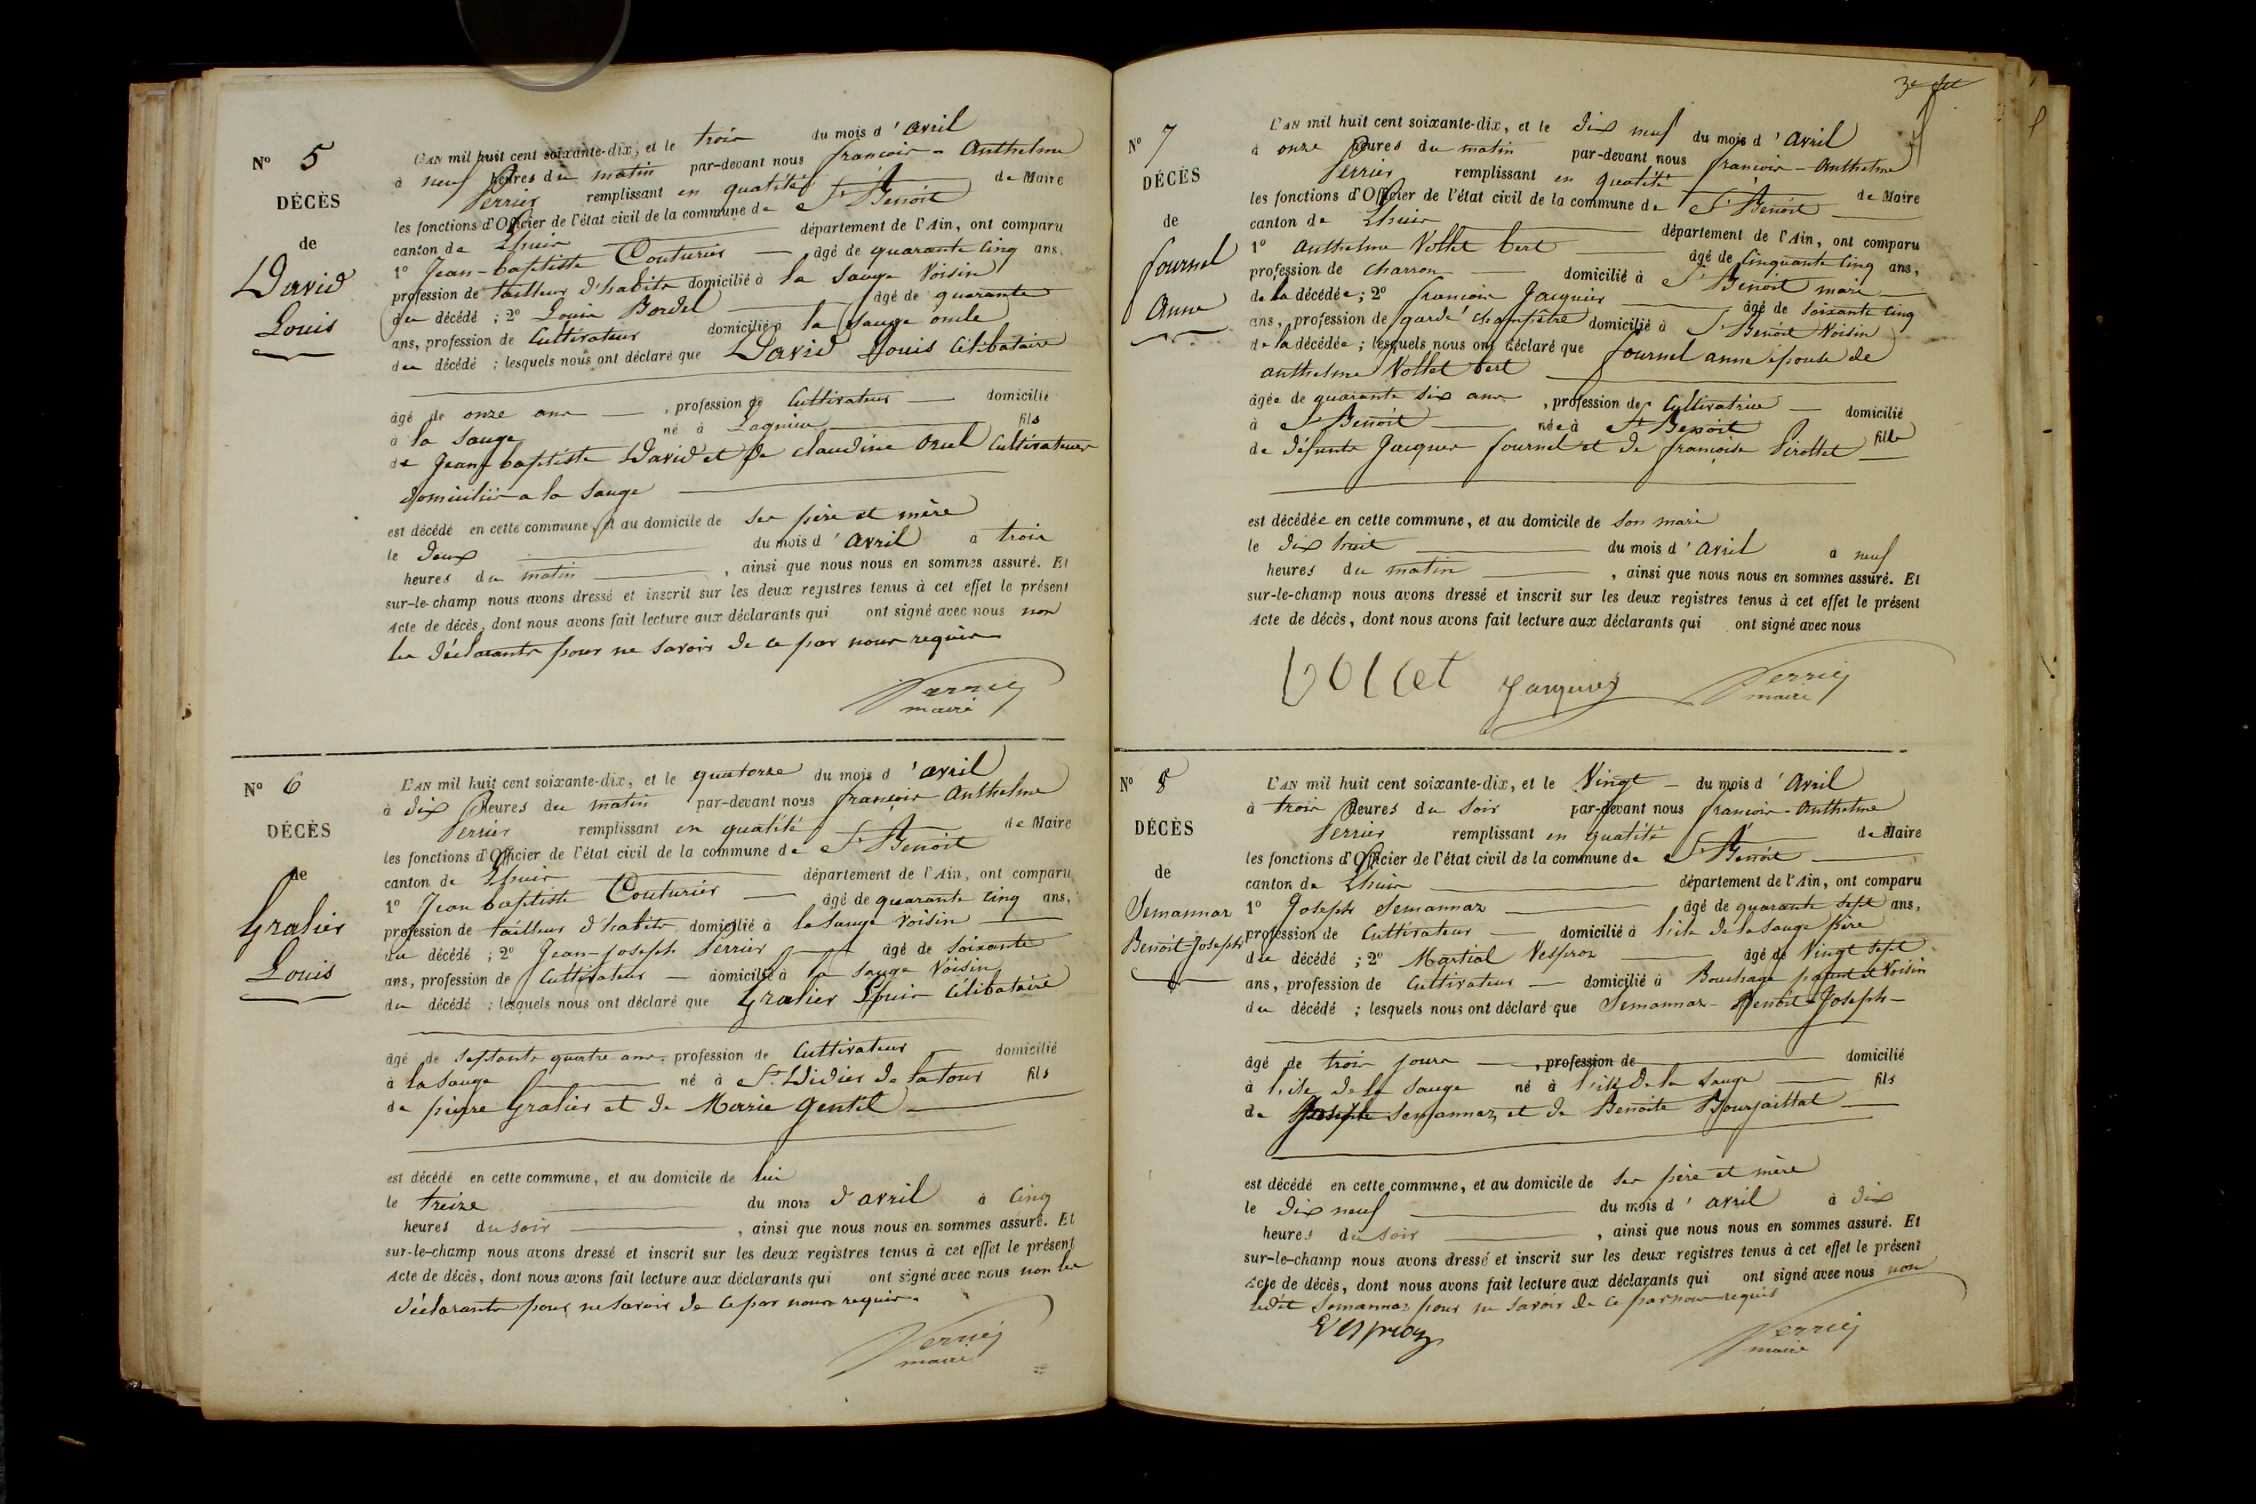 N° 5
DÉCÈS
de
David
Louis
L'AN mil huit cent soixante-dix, et le trois du mois d'avril
à neuf heures du matin par-devant nous françois-Anthelme
Perrier remplissant en qualité de Maire
les fonctions d'Officier de l'état civil de la commune de St Benoit
canton de Lhuis département de l'Ain, ont comparu
1° Jean-baptiste Couturier âgé de quarante cinq ans,
profession de tailleur d'habits domicilié à la Sauge Voisin
du décédé ; 2° Louis Bordel âgé de quarante
ans, profession de Cultivateur domicilié à la Sauge oncle
du décédé ; lesquels nous ont déclaré que David Louis Célibataire
âgé de onze ans, profession de Cultivateur domicilié
à la Sauge né à Lagnieu fils
de Jean baptiste David et de claudine Cultivateurs
domiciliés a la Sauge
est décédé en cette commune, et au domicile de ses père et mère
le deux du mois d'avril à trois
heures du matin, ainsi que nous nous en sommes assuré. Et
sur-le-champ nous avons dressé et inscrit sur les deux registres tenus à cet effet le présent
Acte de décès, dont nous avons fait lecture aux déclarants qui ont signé avec nous non
les déclarants pour ne savoir de ce par nous requis
Perrier
maire
N° 6
DÉCÈS
de
Gralier
Louis
L'AN mil huit cent soixante-dix, et le quatorze du mois d'avril
à dix heures du matin par-devant nous françois-Anthelme
Perrier remplissant en qualité de Maire
les fonctions d'Officier de l'état civil de la commune de St Benoit
canton de Lhuis département de l'Ain, ont comparu
1° Jean baptiste Couturier âgé de quarante cinq ans,
profession de tailleur d'habits domicilié à la Sauge Voisin
du décédé ; 2° Jean-Joseph Perrier âgé de soixante
ans, profession de Cultivateur domicilié à la Sauge Voisin
du décédé ; lesquels nous ont déclaré que Gralier Louis Célibataire
âgé de septante quatre ans, profession de Cultivateur domicilié
à la Sauge né à St Didier de la tour fils
de pierre Gralier et de Marie Gentil
est décédé en cette commune, et au domicile de lui
le treize du mois d'avril à Cinq
heures du soir, ainsi que nous nous en sommes assuré. Et
sur-le-champ nous avons dressé et inscrit sur les deux registres tenus à cet effet le présent
Acte de décès, dont nous avons fait lecture aux déclarants qui ont signé avec nous non les
déclarants pour ne savoir de ce par nous requis.
Perrier
maire
N° 7
DÉCÈS
de
fournel
Anne
L'AN mil huit cent soixante-dix, et le dix neuf du mois d'avril
à onze heures du matin par-devant nous françois-Anthelme
Perrier remplissant en qualité de Maire
les fonctions d'Officier de l'état civil de la commune de St Benoit
canton de Lhuis département de l'Ain, ont comparu
1° Anthelme Vollet bert âgé de Cinquante Cinq ans,
profession de charron domicilié à St Benoit mari
de la décédée ; 2° françois Jacquier âgé de soixante cinq
ans, profession de garde champêtre domicilié à St Benoit Voisin
de la décédée ; lesquels nous ont déclaré que fournel anne épouse de
anthelme Vollet bert
âgée de quarante six ans, profession de Cultivatrice domicilié
à St Benoit née à St Benoit fille
de défunts Jacques fournel et de françoise Pirollet
est décédée en cette commune, et au domicile de son mari
le dix huit du mois d'avril à neuf
heures du matin, ainsi que nous nous en sommes assuré. Et
sur-le-champ nous avons dressé et inscrit sur les deux registres tenus à cet effet le présent
Acte de décès, dont nous avons fait lecture aux déclarants qui ont signé avec nous
VOllet Jacquier Perrier
maire
N° 8
DÉCÈS
de
Semannaz
Benoit-Joseph
L'AN mil huit cent soixante-dix, et le Vingt du mois d'Avril
à trois heures du soir par-devant nous françois-Anthelme
Perrier remplissant en qualité de Maire
les fonctions d'Officier de l'état civil de la commune de St Benoit
canton de Lhuis département de l'Ain, ont comparu
1° Joseph Semannaz âgé de quarante sept ans,
profession de Cultivateur domicilié à l'ile de la Sauge Père
du décédé ; 2° Martial Vesproz âgé de Vingt sept
ans, profession de Cultivateur domicilié à Bouchage parent et Voisin
du décédé ; lesquels nous ont déclaré que Semannaz-Benoit-Joseph-
âgé de trois jours, profession de domicilié
à l'ile de la Sauge né à l'ile de la Sauge fils
de Joseph Semannaz et de Benoite Bourjaillat
est décédé en cette commune, et au domicile de ses père et mère
le dix neuf du mois d'avril à dix
heures du soir, ainsi que nous nous en sommes assuré. Et
sur-le-champ nous avons dressé et inscrit sur les deux registres tenus à cet effet le présent
Acte de décès, dont nous avons fait lecture aux déclarants qui ont signé avec nous non
ledit Semannaz pour ne savoir de ce par nous requis
Vesproz Perrier
maire